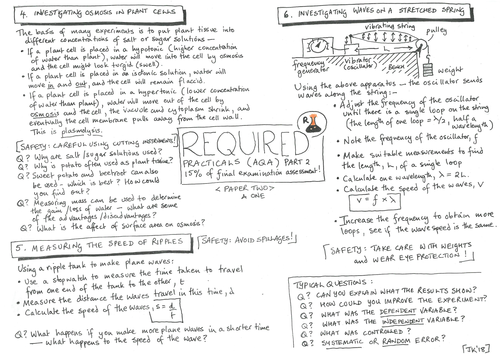 4. INVESTIGATING OSMOSIS IN PLANT CELLS
The basis of many experiments is to put plant tissue into
different concentrations of salt or sugar solutions —
• If a plant cell is placed in a hypotonic (higher concentration
of water than plant), water will move into the cell by osmosis
and the cell might look turgid (swell).
• If a plant cell is placed in an isotonic solution, water will
move in and out, and the cell will remain flaccid.
• If a plant cell is placed in a hypertonic (lower concentration
of water than plant), water will move out of the cell by
osmosis and the cell, the vacuole and cytoplasm shrink, and
eventually the cell membrane pulls away from the cell wall.
This is plasmolysis.
[SAFETY: CAREFUL USING CUTTING MOVEMENTS!]
Q? Why are salt/sugar solutions used?
Q? Why is potato often used as plant tissue?
Q? Sweet potato and beetroot can also
be used - which is best? How could
you find out?
Q? Measuring mass can be used to determine
the gain/loss of water — what are some
of the advantages/disadvantages?
Q? What is the affect of surface area on osmosis?
5. MEASURING THE SPEED OF RIPPLES
[SAFETY: AVOID SPILLAGES!]
Using a ripple tank to make plane waves:
• Use a stopwatch to measure the time taken to travel
from one end of the tank to the other, t
• Measure the distance the waves travel in this time, d
• Calculate the speed of the waves, s = d/t
Q? What happens if you make more plane waves in a shorter time
— what happens to the speed of the wave?
REQUIRED
PRACTICALS (AQA) PART 2
15% of final examination assessment!
< PAPER TWO >
R
6. INVESTIGATING WAVES ON A STRETCHED SPRING
vibrating string
pulley
frequency generator
vibrator (oscillator)
Bench
weight
Using the above apparatus — the oscillator sends
waves along the string:-
• Adjust the frequency of the oscillator
until there is a single loop on the string
(the length of one loop = λ/2, half a
wavelength)
• Note the frequency of the oscillator, f
• Make suitable measurements to find
the length, L, of a single loop
• Calculate one wavelength, λ = 2L.
• Calculate the speed of the waves, V
V = f × λ
• Increase the frequency to obtain more
loops, see if the wave speed is the same.
[SAFETY: TAKE CARE WITH WEIGHTS
and WEAR EYE PROTECTION!]
TYPICAL QUESTIONS:
Q? CAN YOU EXPLAIN WHAT THE RESULTS SHOW?
Q? HOW COULD YOU IMPROVE THE EXPERIMENT?
Q? WHAT WAS THE DEPENDENT VARIABLE?
Q? WHAT WAS THE INDEPENDENT VARIABLE?
Q? WHAT WAS CONTROLED?
Q? SYSTEMATIC OR RANDOM ERROR?
[JK'18]